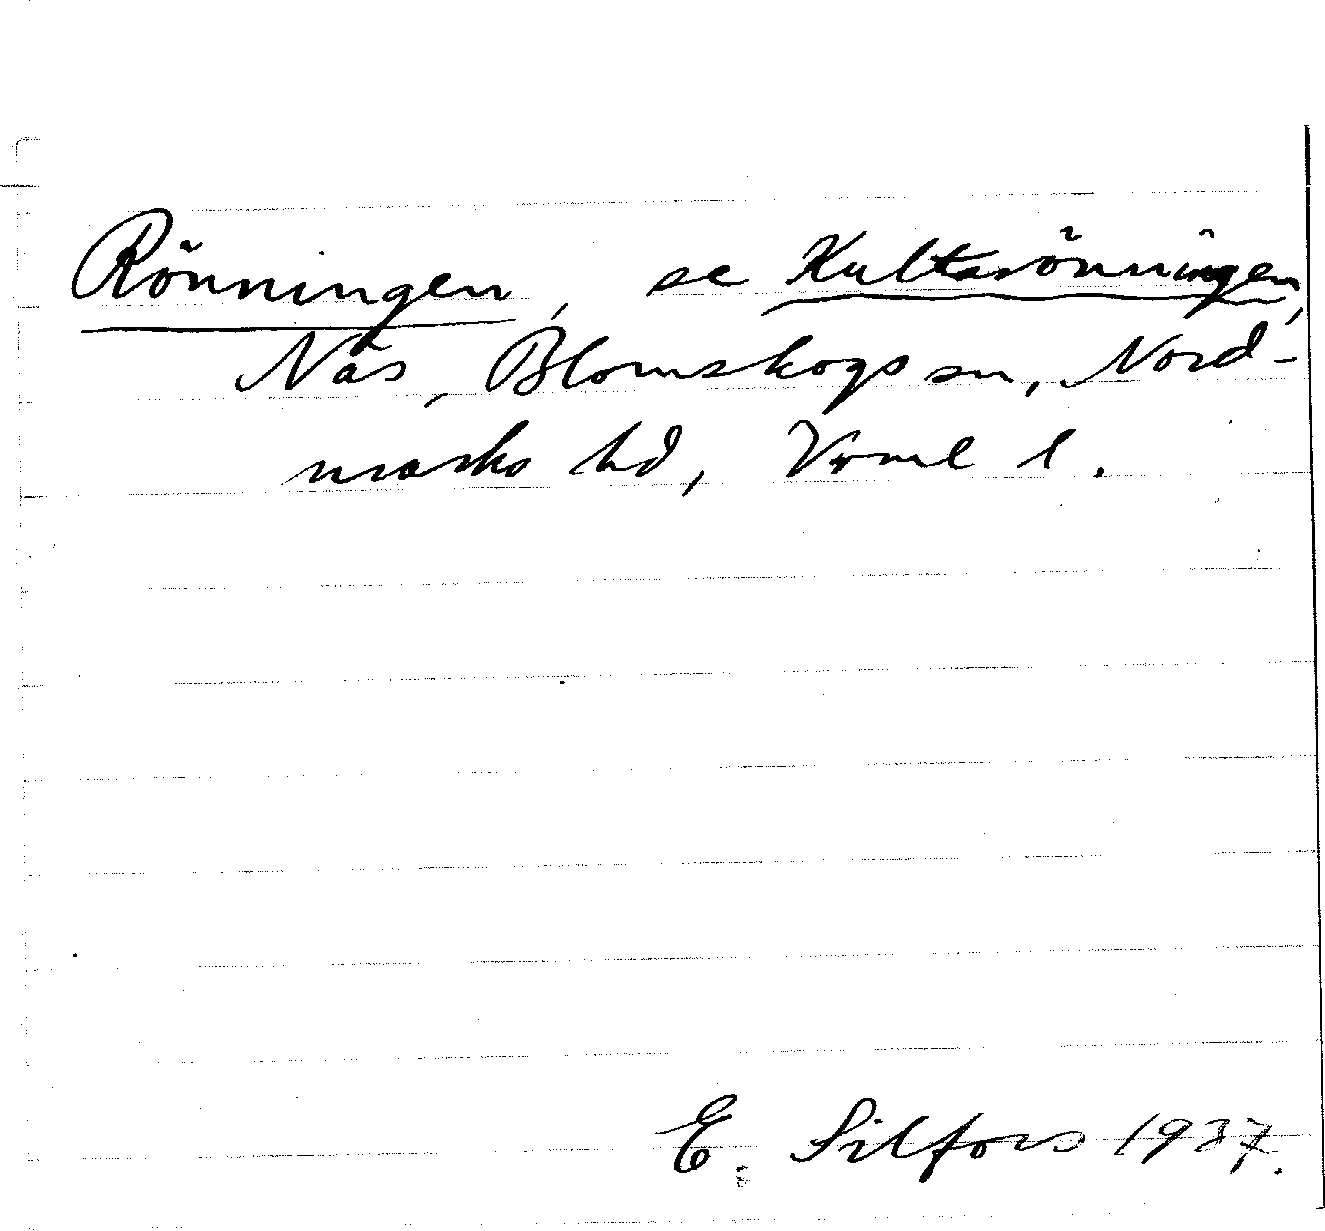 Rönningen, se Kultarönningen,
Näs, Blomskogs sn, Nord-
marks hd, Vrml l.
E. Silfors 1937.